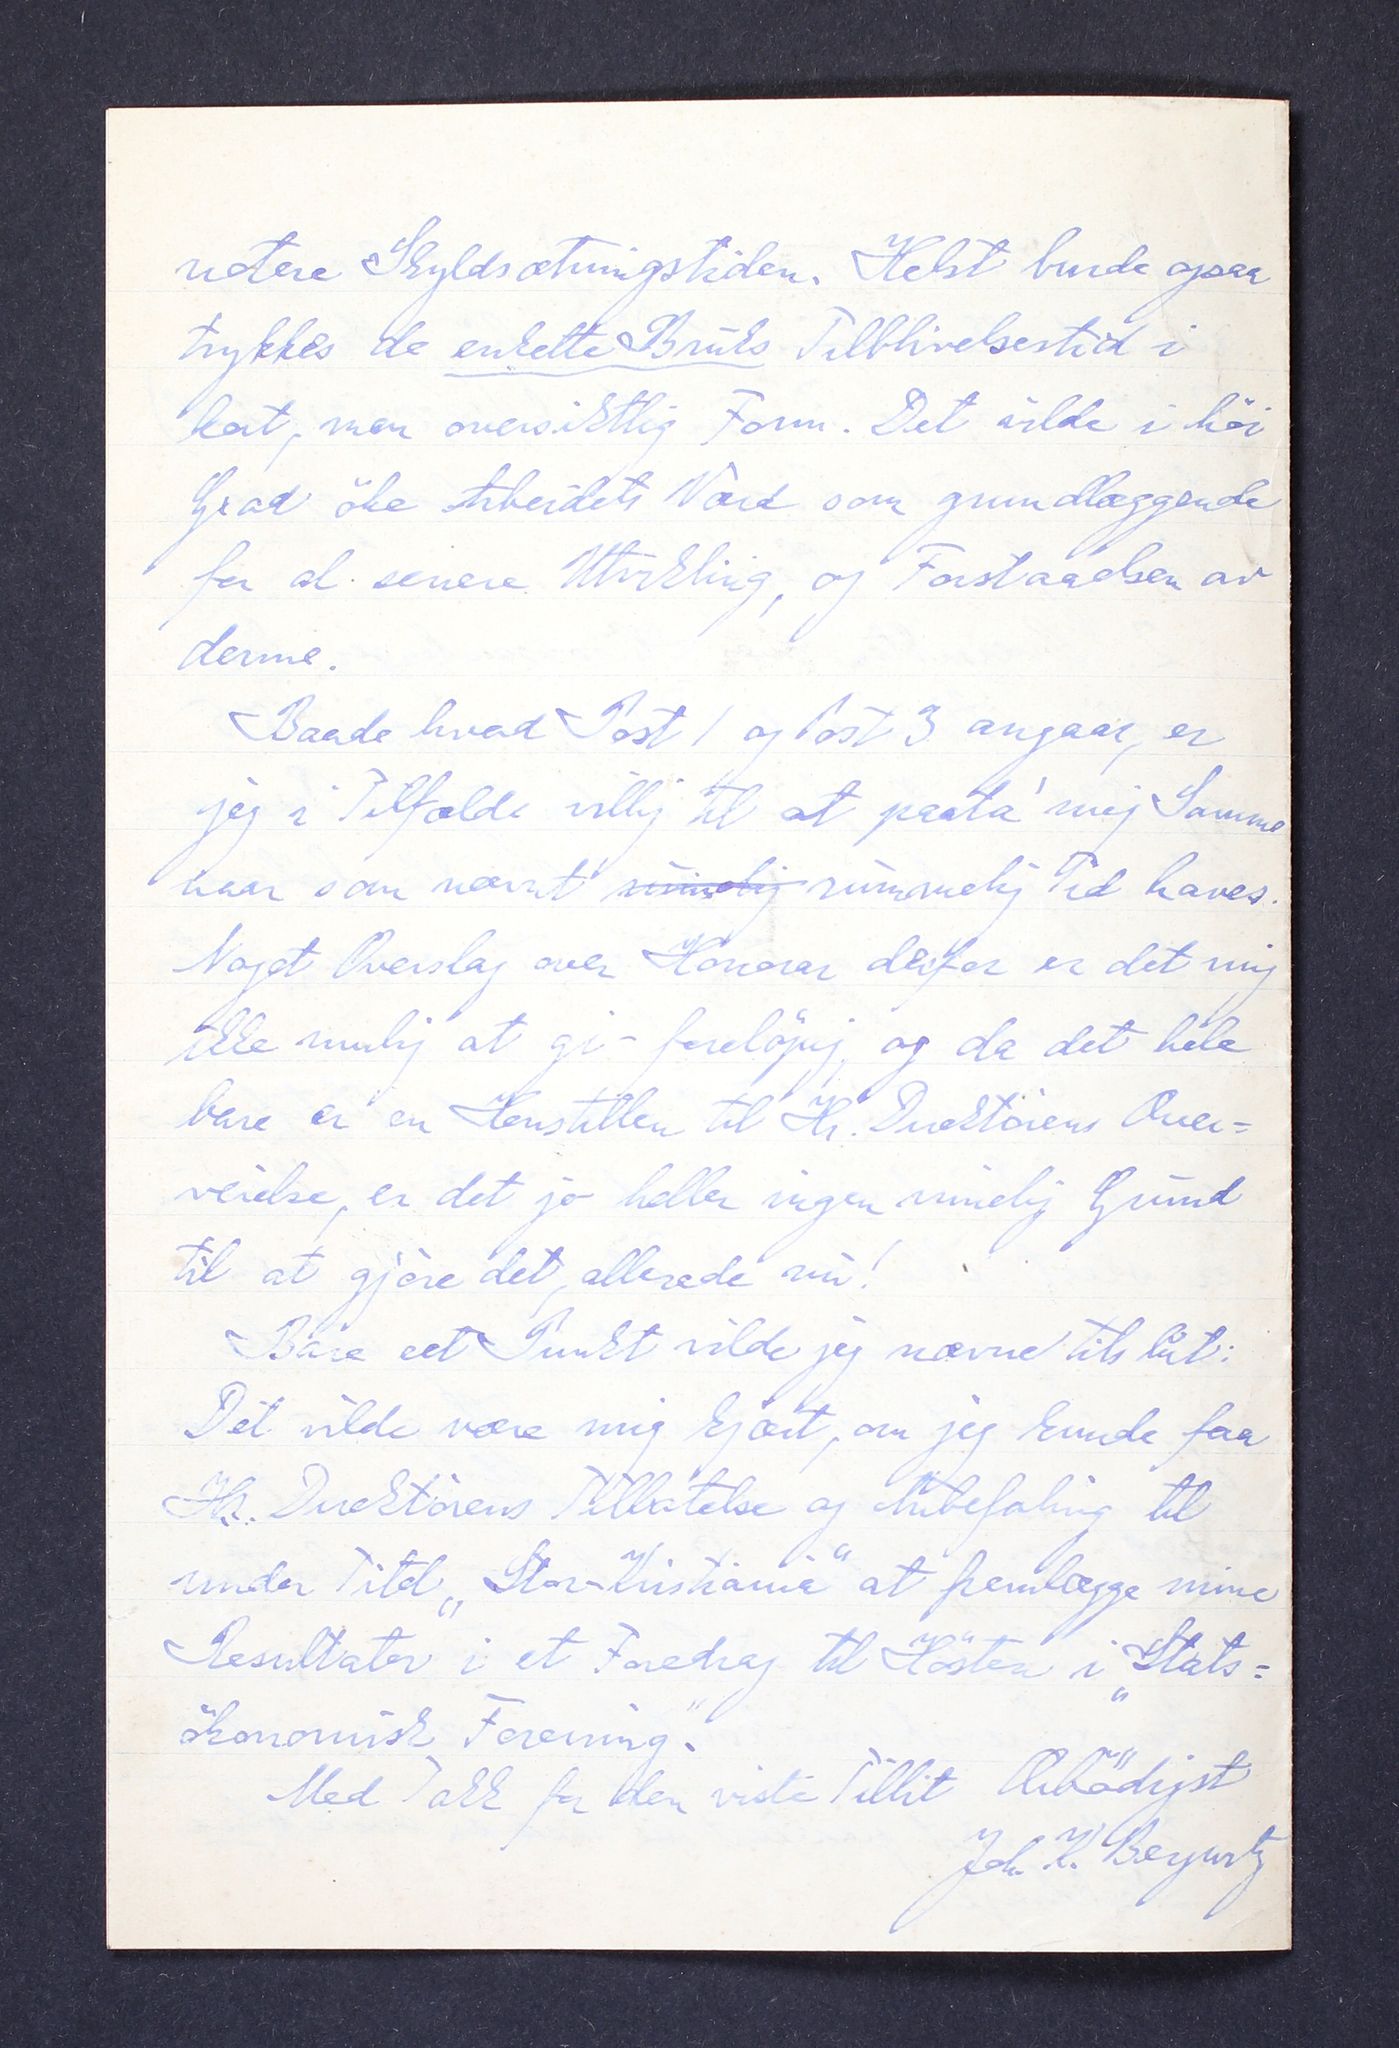 notere Skyldsætningstiden. Helst burde ogsaa
trykkes de enkelte Bruks Tilblivelsestid i
kort, men oversiktlig Form. Det vilde i høi
Grad öke Arbeidets Værd som grundlæggende
for al senere Utvikling, og Forstaaelsen av
denne.
Baade hvad Post 1 og Post 3 angaar, er
jeg i Tilfælde villig til at paata mig Samme
naar som nævnt rimelig rummelig Tid haves.
Noget Overslag over Honorar derfor er det mig
ikke mulig at gi - foreløpig, og da det hele
bare er en Henstillen til Hr. Direktörens Over=
veielse, er det jo heller ingen rimelig Grund
til at gjöre det, allerede nu!
Bare eet Punkt vilde jeg nævne tilslut:
Det vilde være mig kjært, om jeg kunde faa
Hr. Direktörens Tillatelse og Anbefaling til
under Titel „Stor-Kristiania“ at fremlægge mine
Resultater i et Foredrag til Hösten i „Stats=
ökonomisk Forening“.
Med Takk for den viste Tillit Ærbödigst
Joh. K. Bergwitz